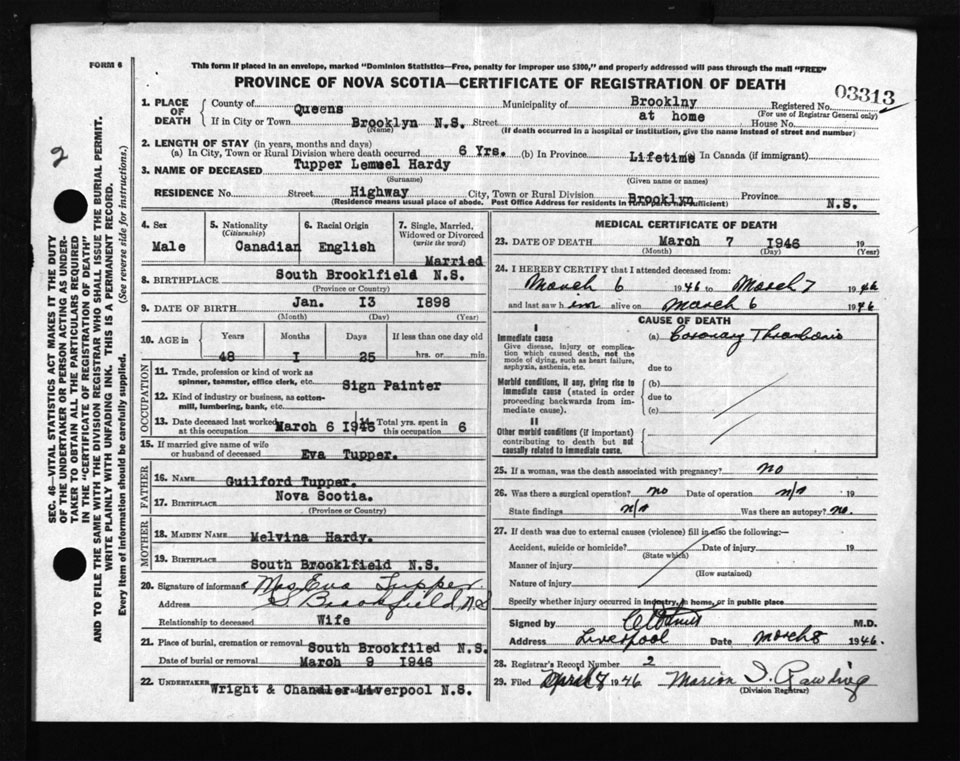 FORM 6
This form if placed in an envelope, marked "Dominion Statistics—Free, penalty for improper use $300," and properly addressed will pass through the mail "FREE"
PROVINCE OF NOVA SCOTIA—CERTIFICATE OF REGISTRATION OF DEATH
03313
1. PLACE OF DEATH
County of Queens Municipality of Brooklny Registered No.
(For use of Registrar General only)
If in City or Town Brooklyn N.S. Street at home House No.
(Name) (If death occurred in a hospital or institution, give the name instead of street and number)
2. LENGTH OF STAY (in years, months and days)
(a) In City, Town or Rural Division where death occurred 6 Yrs. (b) In Province Lifetime In Canada (if immigrant)
3. NAME OF DECEASED Tupper Lemmel Hardy
(Surname) (Given name or names)
RESIDENCE No. Street Highway City, Town or Rural Division Brooklyn Province N.S.
(Residence means usual place of abode. Post Office Address for residents in rural parts not sufficient)
4. Sex Male
5. Nationality (Citizenship) Canadian
6. Racial Origin English
7. Single, Married, Widowed or Divorced (write the word) Married
8. BIRTHPLACE South Brooklfield N.S.
(Province or Country)
9. DATE OF BIRTH Jan. 13 1898
(Month) (Day) (Year)
10. AGE in Years Months Days If less than one day old
48 I 25 hrs. or min.
OCCUPATION
11. Trade, profession or kind of work as spinner, teamster, office clerk, etc. Sign Painter
12. Kind of industry or business, as cotton-mill, lumbering, bank, etc.
13. Date deceased last worked at this occupation March 6 1946
14. Total yrs. spent in this occupation 6
15. If married give name of wife or husband of deceased Eva Tupper.
FATHER
16. NAME Guilford Tupper.
17. BIRTHPLACE Nova Scotia.
(Province or Country)
MOTHER
18. MAIDEN NAME Melvina Hardy.
19. BIRTHPLACE South Brooklfield N.S.
20. Signature of informant Mrs Eva Tupper.
Address S Brookfield N.S
Relationship to deceased Wife
21. Place of burial, cremation or removal South Brookfiled N.S.
Date of burial or removal March 9 1946
22. UNDERTAKER Wright & Chandler Liverpool N.S.
MEDICAL CERTIFICATE OF DEATH
23. DATE OF DEATH March 7 1946 19
(Month) (Day) (Year)
24. I HEREBY CERTIFY that I attended deceased from:
March 6 1946 to March 7 1946
and last saw him alive on March 6 1946
CAUSE OF DEATH
I
Immediate cause
Give disease, injury or complication which caused death, not the mode of dying, such as heart failure, asphyxia, asthenia, etc.
(a) Coronary Thrombosis
due to
Morbid conditions, if any, giving rise to immediate cause (stated in order proceeding backwards from immediate cause).
(b)
due to
(c)
II
Other morbid conditions (if important) contributing to death but not causally related to immediate cause.
25. If a woman, was the death associated with pregnancy? no
26. Was there a surgical operation? no Date of operation n/r 19
State findings n/r Was there an autopsy? no.
27. If death was due to external causes (violence) fill in also the following:—
Accident, suicide or homicide? Date of injury 19
(State which)
Manner of injury
(How sustained)
Nature of injury
Specify whether injury occurred in industry, in home, or in public place
Signed by M.D.
Address Liverpool Date March 8 1946.
28. Registrar's Record Number 2
29. Filed April 1946 Marion I. Rawding
(Division Registrar)
2
SEC. 46—VITAL STATISTICS ACT MAKES IT THE DUTY
OF THE UNDERTAKER OR PERSON ACTING AS UNDER-
TAKER TO OBTAIN ALL THE PARTICULARS REQUIRED
IN THE "CERTIFICATE OF REGISTRATION OF DEATH"
AND TO FILE THE SAME WITH THE DIVISION REGISTRAR WHO SHALL ISSUE THE BURIAL PERMIT.
WRITE PLAINLY WITH UNFADING INK. THIS IS A PERMANENT RECORD.
Every item of information should be carefully supplied. (See reverse side for instructions.)